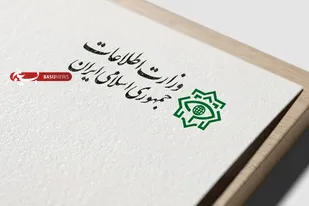 وزارت اطلاعات
جمهوری اسلامی ایران
BASUNEWS